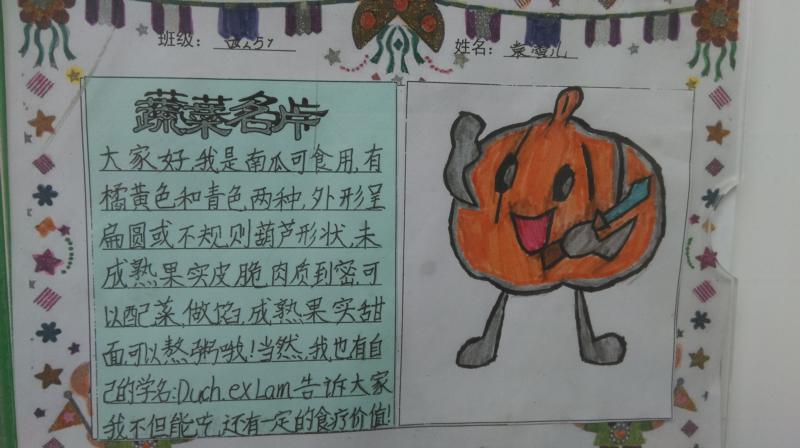 班级：
姓名：
蔬菜名片
大家好,我是南瓜可食用,有
橘黄色和青色,两种,外形呈
扁圆或不规则葫芦形状,未
成熟果实皮脆,肉质到密,可
以配菜,做馅,成熟果实甜
面,可以熬粥哦!当然,我,也有自
己的学名:Duch.exLam.告诉大家
我不但能吃,还有一定的食疗价值!